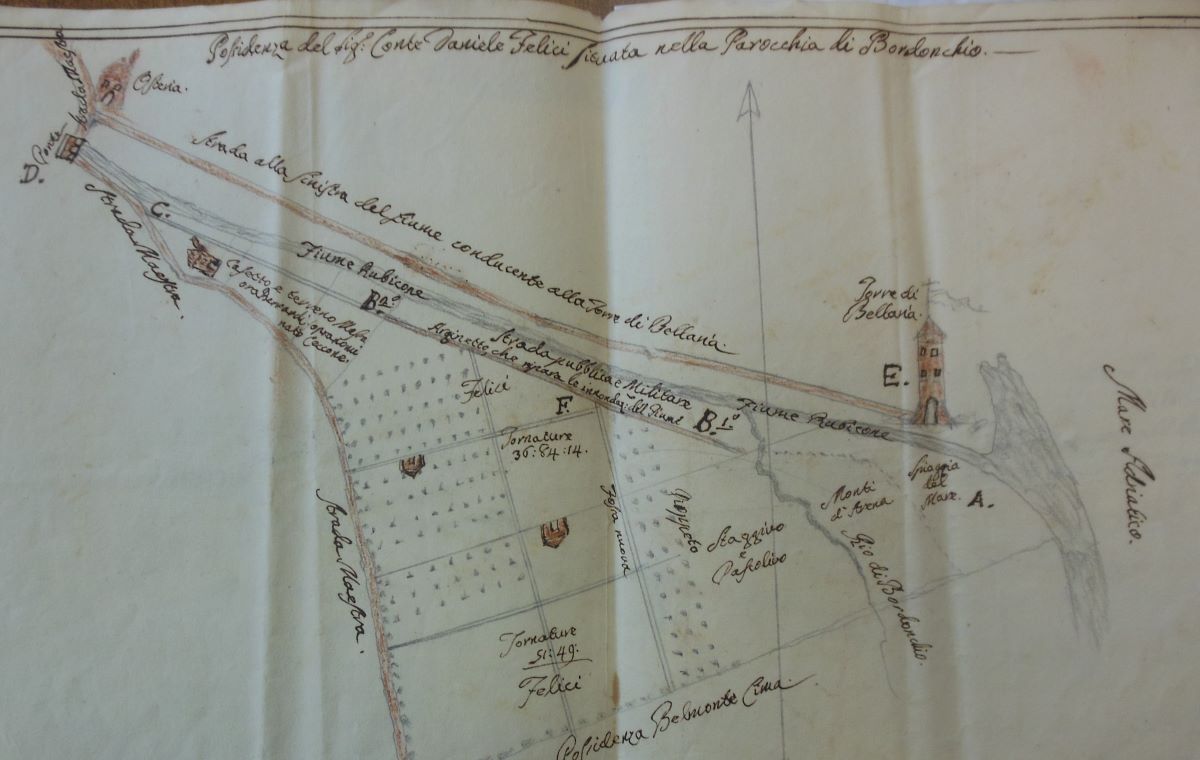 Possidenza del Sig.r Conte Daniele Felici situata nella Parocchia di Bordonchio.
Strada Maestra
Osteria.
Ponte
D.
Strada alla sinistra del fiume conducente alla Torre di Bellaria.
C.
Strada Maestra.
Fiume Rubicone
B. 2.º
Casetto e terreno
Strada pubblica e Militare
Arginetto che ripara le innondaz.i del Fiume
B. 1.º
Fiume Rubicone
Torre di
Bellaria.
E.
Mare Adriatico.
Spiaggia
del
Mare.
A.
Felici
F.
Tornature
36:84:14.
Fossa nuova
Pioppeto
Staggivo
e
Pascolivo
Monti
d'Arena
Rio di Bordonchio.
Strada Maestra.
Tornature
51:49.
Felici
Possidenza Belmonte Cima.